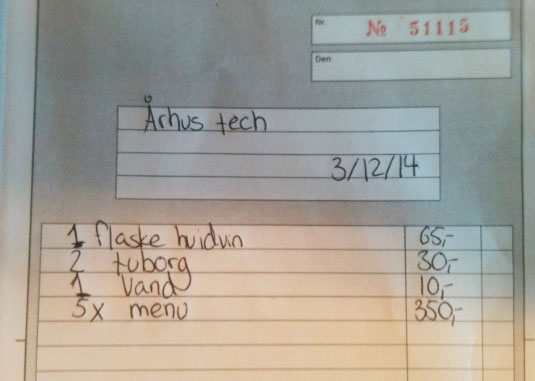 Nr. № 51115
Den
Århus tech
3/12/14
1 flaske hvidvin 65,-
2 tuborg 30,-
1 vand 10,-
5x menu 350,-